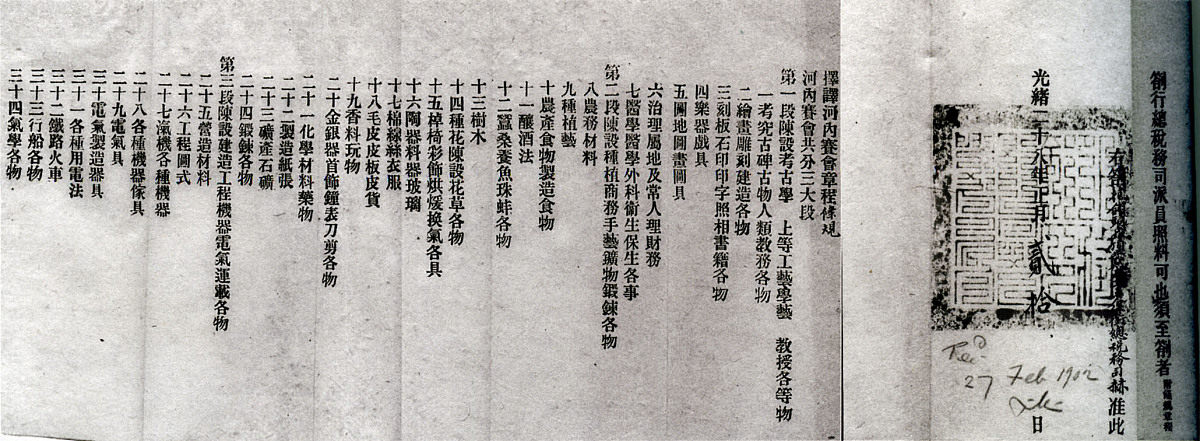 劄行總稅務司派員照料可也須至劄者
總稅務司赫准此
光緒二十八年正月貳拾日
Recd
27 Feb 1902
擇譯河內賽會章程條規
河內賽會共分三大段
第一段陳設考古學 上等工藝學藝 教授各等物
一考究古碑古物人類教務各物
二繪畫雕刻建造各物
三刻板石印印字照相書籍各物
四樂器戲具
五圖地圖畫圖具
六治理屬地及常人理財務
七醫學醫學外科衞生保生各事
第二段陳設種植商務手藝鑛物鍛鍊各物
八農務材料
九種植藝
十農產食物製造食物
十一釀酒法
十二蠶桑養魚珠蚌各物
十三樹木
十四種花陳設花草各物
十五棹椅彩飾烘煖換氣各具
十六陶器料器玻璃
十七棉線絲衣服
十八毛皮皮板皮貨
十九香料玩物
二十金銀器首飾鐘表刀剪各物
二十一化學材料藥物
二十二製造紙張
二十三礦產石礦
二十四鍛鍊各物
第三段陳設建造工程機器電氣運載各物
二十五營造材料
二十六工程圖式
二十七滊機各種機器
二十八各種機器傢具
二十九電氣具
三十電氣製造器具
三十一各種用電法
三十二鐵路火車
三十三行船各物
三十四氣學各物